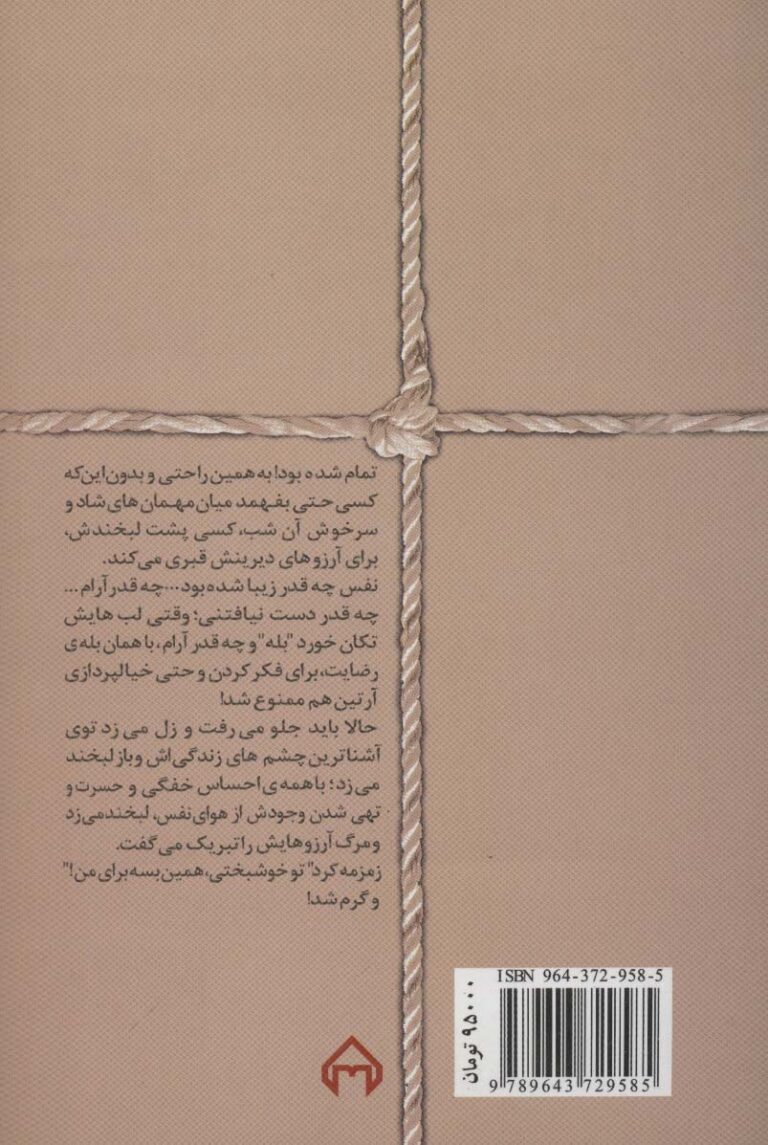 تمام شده بود! به همین راحتی و بدون این‌که
کسی حتی بفهمد میان مهمان های شاد و
سرخوش آن شب، کسی پشت لبخندش،
برای آرزوهای دیرینش قبری می‌کند.
نفس چه قدر زیبا شده بود... چه قدر آرام ...
چه قدر دست نیافتنی؛ وقتی لب هایش
تکان خورد "بله" و چه قدر آرام، با همان بله‌ی
رضایت، برای فکر کردن و حتی خیالپردازی
آرتین هم ممنوع شد!
حالا باید جلو می رفت و زل می زد توی
آشناترین چشم های زندگی‌اش و باز لبخند
می زد؛ با همه‌ی احساس خفگی و حسرت و
تهی شدن وجودش از هوای نفس، لبخند می زد
و مرگ آرزوهایش را تبریک می گفت.
زمزمه کرد" تو خوشبختی، همین بسه برای من!"
و گرم شد!
ISBN 964-372-958-5
۹۵۰۰۰ تومان
9 789643 729585